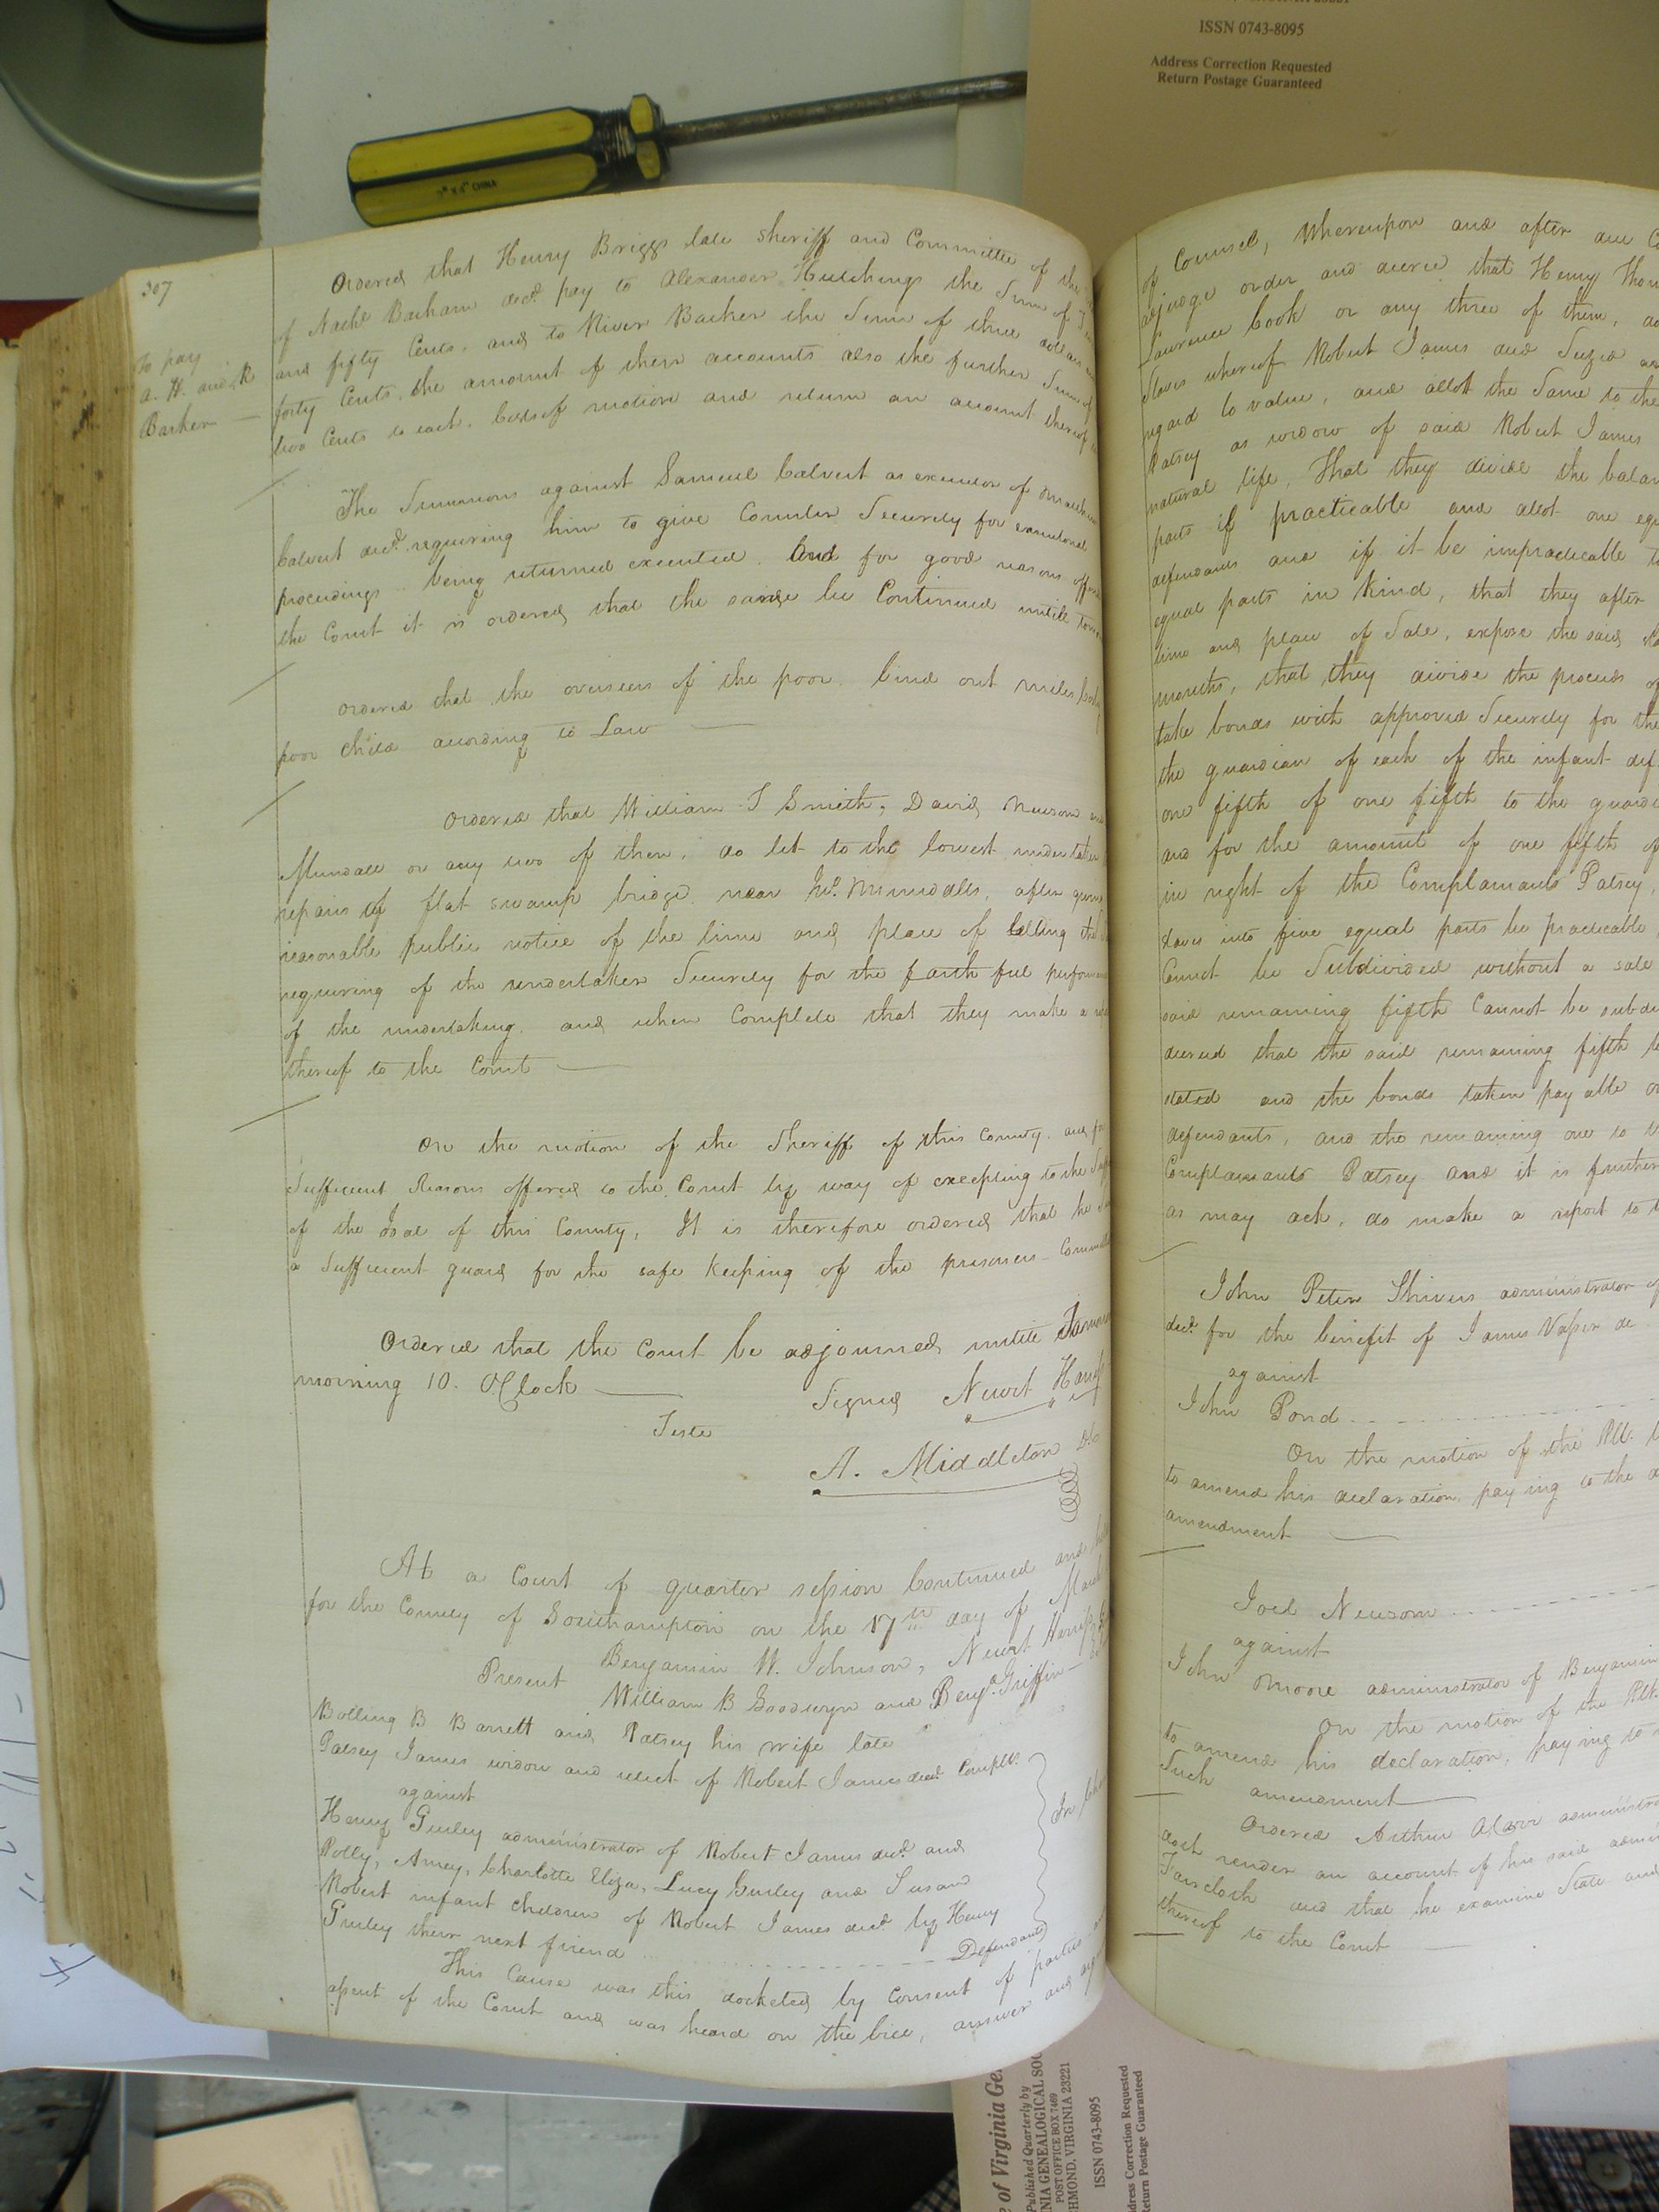 ISSN 0743-8095
Address Correction Requested
Return Postage Guaranteed
CHINA
307
To pay
A. H. and R
Barker —
Ordered that Henry Briggs late Sheriff and Committee of the
of Nathl Barham decd. pay to Alexander Hutchings the Sum of
and fifty Cents. and to River Barker the Sum of three dollars
forty Cents, the amount of their accounts also the further Sum of
two Cents to each, Costs of motion and return an account thereof
The Summons against Samuel Calvert as executor of
Calvert decd. requiring him to give Counter Security for
proceedings being returned executed. And for good reasons
the Court it is ordered that the same be Continued untill
Ordered that the overseers of the poor bind out Miles
poor child according to Law —
Ordered that William T Smith, David Newsom
or any two of them, do let to the lowest undertaker
repairs of flat swamp bridge near after
reasonable public notice of the time and place of letting
requiring of the undertaker Security for the faithful
of the undertaking. and when Complete that they make a
thereof to the Court —
On the motion of the Sheriff of this County. and for
Sufficient Reasons offered to the Court by way of excepting to the
of the Goal of this County, It is therefore ordered that he
a Sufficient guard for the safe Keeping of the prisoners
Ordered that the Court be adjourned untill
morning 10. OClock —
Signed Newit
Teste
A. Middleton
At a Court of quarter session Continued and
for the County of Southampton on the 17th day of
Present Benjamin W. Johnson, Newit Harris
William B Goodwyn and Benja. Griffin
Bolling B Barrett and Patsey his wife late
Patsey James widow and relict of Robert James decd. Complts.
against
Henry Gurley administrator of Robert James decd. and
Polly, Amey, Charlotte Eliza, Lucy Gurley and Susan
Robert infant children of Robert James decd. by Henry
Gurley their next friend - - - Defendants
In
This Cause was this docketed by Consent of parties
assent of the Court and was heard on the bill, answer and
of Counsel, Whereupon and after
adjudge order and decree that Henry
Lawrence Cook or any three of them,
Slaves whereof Robert James died Seized
regard to value, and allot the Same to the
Patsey as widow of said Robert James
natural life, That they divide the
parts if practicable and allot one
defendants and if it be impracticable
equal parts in Kind, that they after
time and place of Sale, expose the said
months, that they divide the proceeds
take bonds with approved Security for the
the guardian of each of the infant
one fifth of one fifth to the
and for the amount of one fifth of
in right of the Complainants Patsey,
slaves into five equal parts be practicable
Cannot be Subdivided without a sale
said remaining fifth Cannot be
decreed that the said remaining fifth
stated and the bonds taken payable
defendants, and the remaining one to
Complainants Patsey and it is further
as may act, do make a report to
John Peter Shivers administrator of
decd. for the benefit of James
against
John Pond - - -
On the motion of the Plt.
to amend his declaration, paying to the
amendment —
Joel Newsom - - -
against
John Moore administrator of Benjamin
On the motion of the Plt.
to amend his declaration, paying to
Such amendment —
Ordered Arthur
render an account of his said
and that he examine State and
thereof to the Court —
of Virginia
Published Quarterly by
GENEALOGICAL
POST OFFICE BOX 7469
VIRGINIA 23221
ISSN 0743-8095
Address Correction Requested
Return Postage Guaranteed